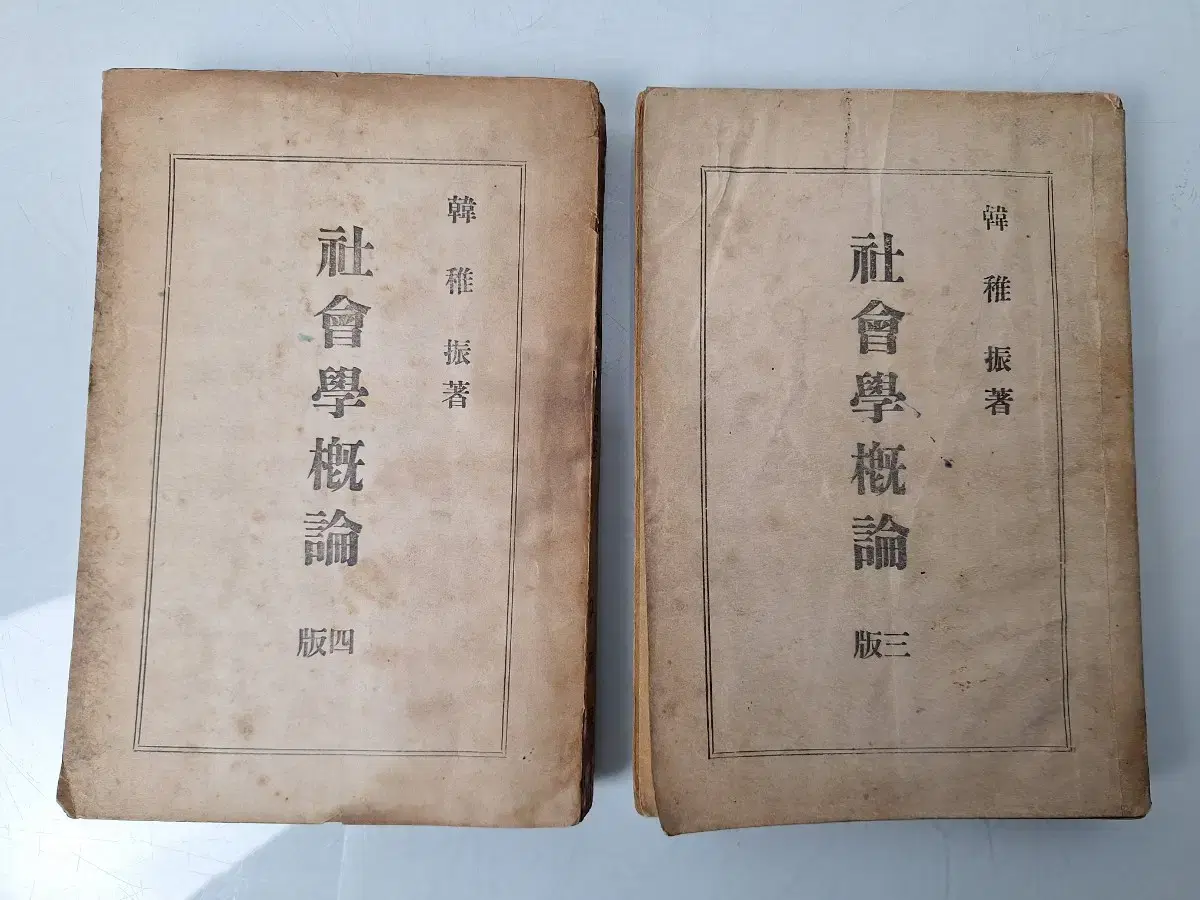 韓稚振著
社會學槪論
四版
韓稚振著
社會學槪論
三版